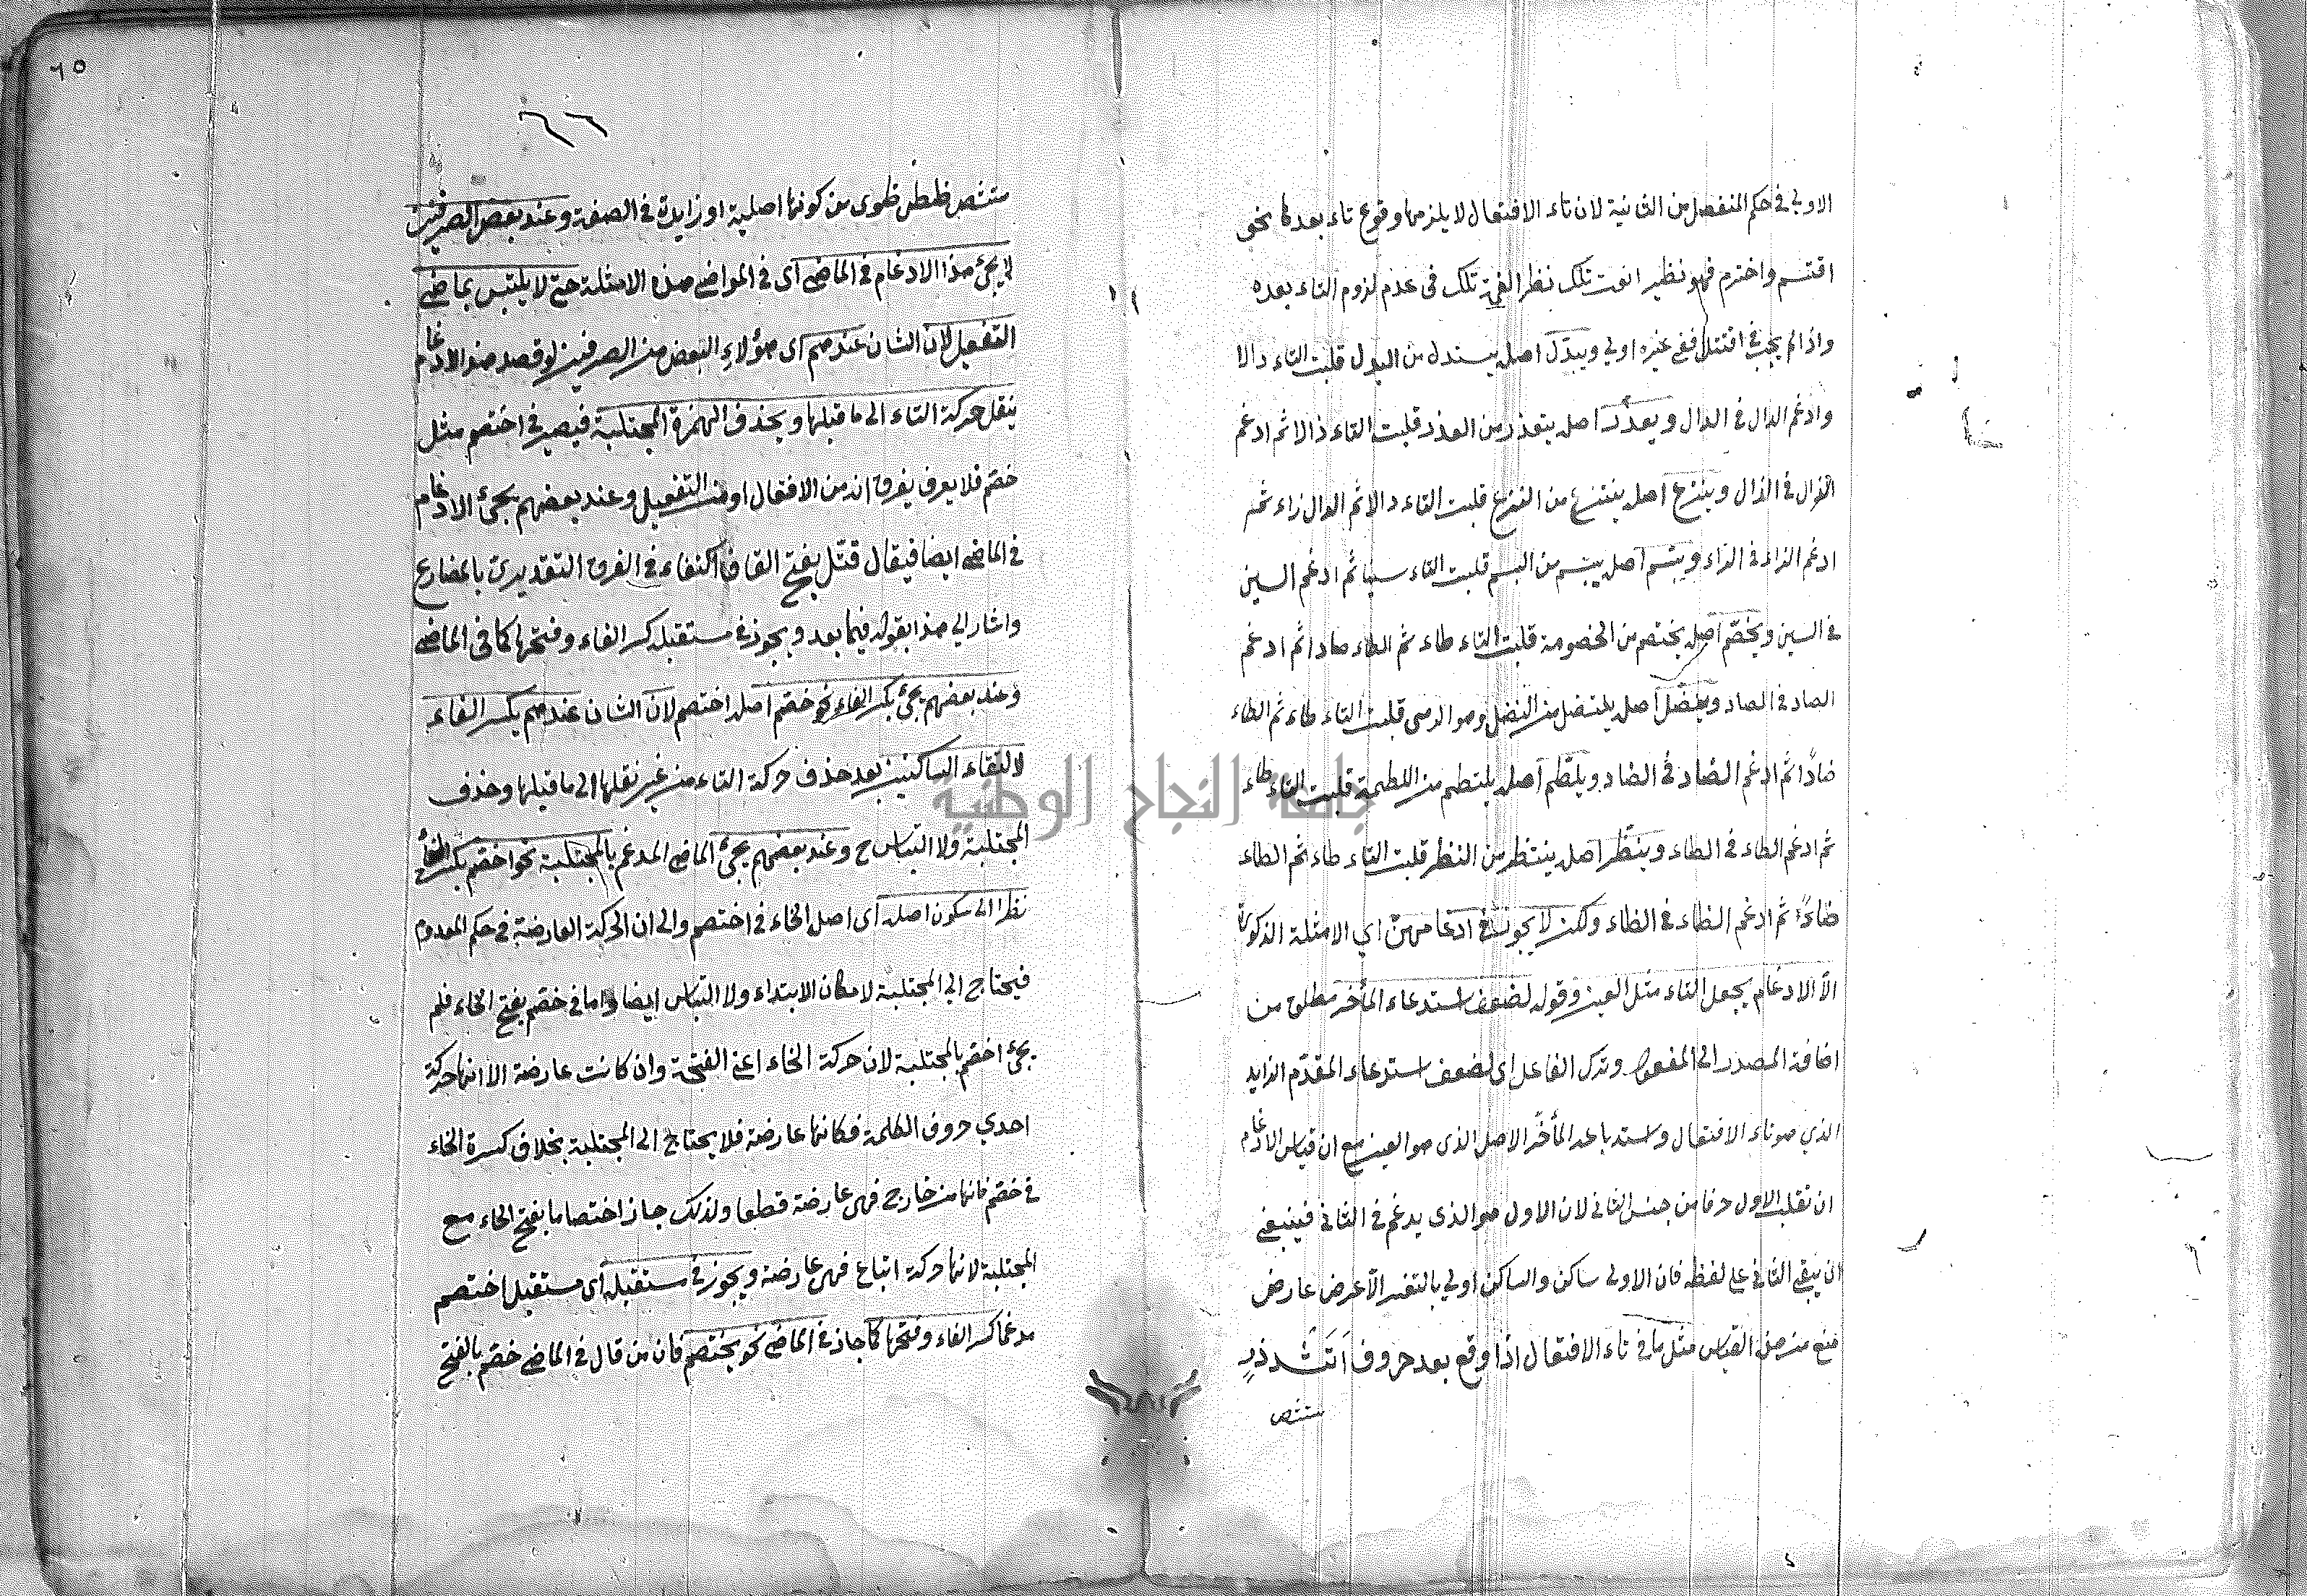 الاولي في حكم المنفصل من الثانية لان تاء الافتعال لا يلزمها وقوع تاء بعدها نحو
اقتسم واخترم فهو نظير انعت تلك نظرا في تلك في عدم لزوم التاء بعده
واذا لم يجب في اقتتل ففي غيره اولي ويبدّل اصله يبتدل من البدل قلبت التاء دالا
وادغم الدال في الدال ويعذّر اصله يتعذر من العذر قلبت التاء ذالا ثم ادغم
الذال في الذال وينزع اصله ينتزع من النزع قلبت التاء دالا ثم الدال زاء ثم
ادغم الزاء في الزاء ويبسم اصله يبتسم من البسم قلبت التاء سينا ثم ادغم السين
في السين ويخصّم اصله يختصم من الخصومة قلبت التاء طاء ثم الطاء صادا ثم ادغم
الصاد في الصاد وينضّل اصله ينتضل من النضل وهو الرمى قلبت التاء طاء ثم الطاء
ضادًا ثم ادغم الضاد في الضاد ويلطّم اصله يلتطم من اللطمة قلبت التاء طاء
ثم ادغم الطاء في الطاء وينظّر اصله ينتظر من النظر قلبت التاء طاء ثم الطاء
ظاءً ثم ادغم الظاء في الظاء ولكن لا يجوز في ادغامهنّ اي الامثلة المذكورة
الّا الادغام بجعل التاء مثل العين وقوله لضعف استدعاء المأخر مطلق من
اضافة المصدر الى المفعول وترك الفاعل اى لضعف استدعاء المقدّم الزايد
الذي هو تاء الافتعال واستدعاء المأخّر الاصلى الذى هو العين مع ان قياس الادغام
ان تقلب الاول حرفا من جنس الثاني لان الاول هو الذى يدغم في الثاني فينبغي
ان يبقي الثاني علي لفظه فان الاولي ساكن والساكن اولي بالتغير الّا عرض عارض
منع من هذا القياس مثل ما في تاء الافتعال اذا وقع بعد حروف اتثدذز
ستثص
٦٥
٦٦
ستشص ضطظ طوى من كونها اصلية او زايدة في الصفة وعند بعض الصرفيين
لا يجئ هذا الادغام في الماضي اى في المواضي هذه الامثلة حتى لا يلتبس بماضي
التفعيل لان الشان عندهم اى هؤلاء البعض من الصرفيين لو قصد هذا الادغام
ينقل حركة التاء الى ما قبلها ويحذف الهمزة المجتلبة فيصير في اختصم مثل
خصّم فلا يعرف يفرق انه من الافتعال او من التفعيل وعند بعضهم يجئ الادغام
في الماضي ايضا فيقال قتّل بفتح القاف اكتفاء في الفرق التقديرى بالمضارع
واشار الي هذا بقوله فيما بعد ويجوز في مستقبله كسر الفاء وفتحها كما في الماضي
وعند بعضهم يجئ بكسر الفاء نحو خصّم اصله اختصم لان الشان عندهم بكسر الفاء
لالتقاء الساكنين بعد حذف حركة التاء من غير نقلها الى ما قبلها وحذف
المجتلبة ولا التباس ح وعند بعضهم يجئ الماضي المدغم بالمجتلبة نحو اخصّم بكسر الخاء
نظرا الى سكون اصله اى اصل الخاء في اختصم والى ان الحركة العارضة في حكم المعدوم
فيحتاج الي المجتلبة لامكان الابتداء ولا التباس ايضا واما في خصّم بفتح الخاء فلم
يجئ اخصّم بالمجتلبة لان حركة الخاء اعني الفتحة وان كانت عارضة الا انها حركة
احدي حروف الكلمة فكانها عارضة فلا يحتاج الى المجتلبة بخلاف كسرة الخاء
في خصّم فانها من خارج فهى عارضة قطعا ولذلك جاز اختصاما بفتح الخاء مع
المجتلبة لانها حركة اتباع فهى عارضة ويجوز في مستقبله اى مستقبل اختصم
مدغما كسر الفاء وفتحها كما جاز في الماضي نحو يختصم فان من قال في الماضي خصّم بالفتح
جامعة النجاح الوطنية